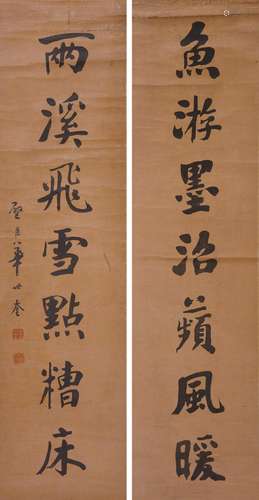 魚游墨沼蘋風暖
兩溪飛雪點糟床
華世奎